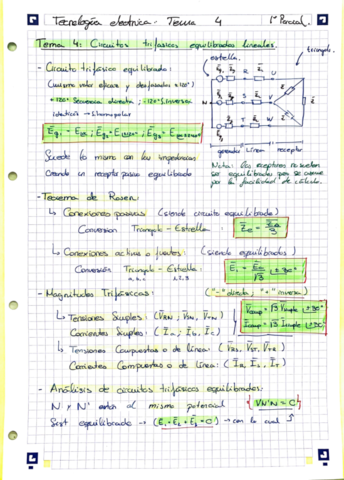 Tecnología eléctrica. Tema 4 1º Parcial.
Tema 4: Circuitos trifásicos equilibrados lineales.
estrella. triangulo.
- Circuito trifásico equilibrado:
(mismo valor eficaz y desfasados ±120º)
* +120º Secuencia directa; -120º S. inversa
R U
N S V
T W
generador Línea receptor
Sucede lo mismo con las impedancias
Creando un receptor pasivo equilibrado
Nota: Los receptores resultan
ser equilibrados pues se asume
por la facilidad de cálculo.
- Teorema de Rosen:
↳ Conexiones pasivas (siendo circuito equilibrado)
Conversión Triangulo - Estrella:
↳ Conexiones activas o fuentes: (siendo equilibrados)
Conversión Triangulo - Estrella:
- Magnitudes Trifásicas: ("-" directa; "+" inversa)
↳ Tensiones Simples: (V̄RN, V̄SN, V̄TN)
Corrientes Simples:
↳ Tensiones Compuestas o de línea: (V̄RS, V̄ST, V̄TR)
Corrientes Compuestas o de línea: (ĪR, ĪS, ĪT)
- Análisis de circuitos trifásicos equilibrados:
N y N' están al mismo potencial VN'N = 0
Sist equilibrado → (Ē₁+Ē₂+Ē₃=0) → con lo cual